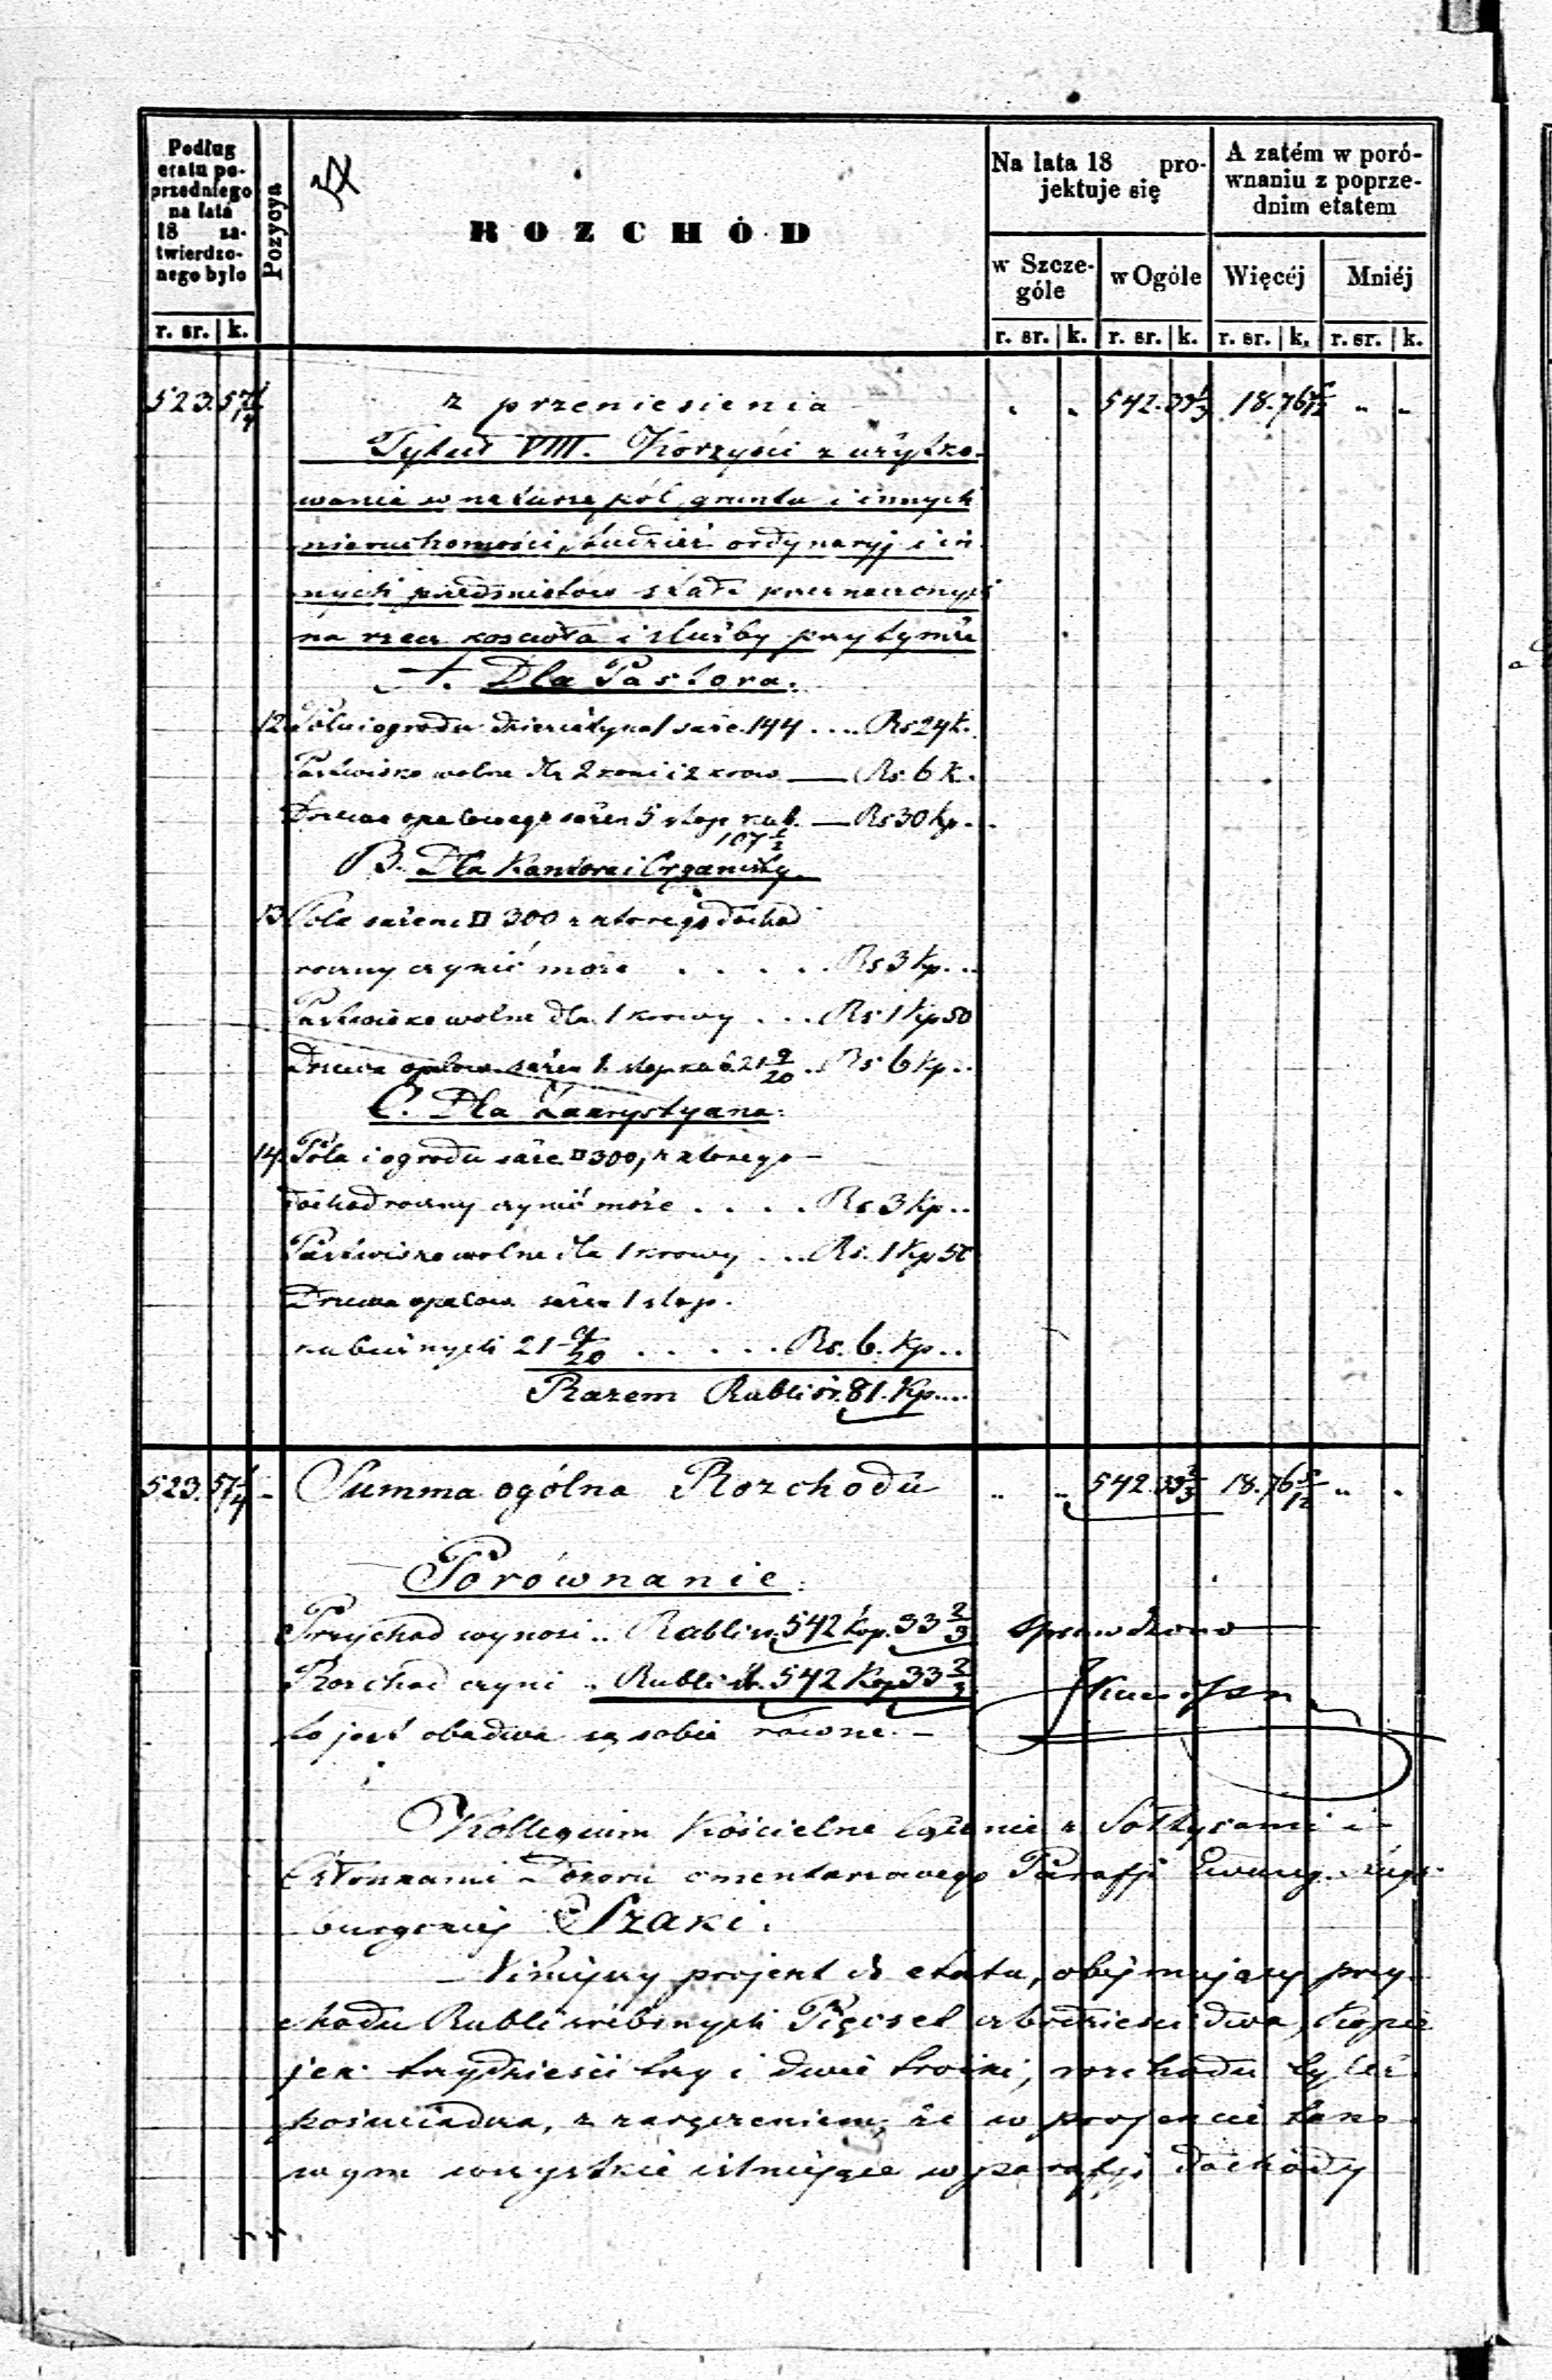 Podług
etatu po-
przedniego
na lata
18 za-
twierdzo-
nego było
r. sr. | k.
Pozycya
ROZCHÓD
Na lata 18 pro-
jektuje się
w Szcze-
góle
r. sr. | k.
w Ogóle
r. sr. | k.
A zatém w poró-
wnaniu z poprze-
dnim etatem
Więcéj
r. sr. | k.
Mniéj
r. sr. | k.
523. 57 1/4 z przeniesienia „ „ 542. 33 2/3 18. 76 5/12 „ „
Tytuł VIII. Korzyści z użytko-
wania w naturze pól, gruntu i innych
nieruchomości, tudzież ordynaryj i in-
nych przedmiotów stale przeznaczonych
na rzecz kościoła i służby przy tymże
A. Dla Pastora.
12 Pola i ogrodu dziesiatyna 1 saże. 144 .... Rs 24 k.
Pastwisko wolne dla 2 koni i 2 krow — Rs. 6 K.
Drzewa opałowego sażen 5 stop kub. — Rs 30 kp..
107 1/2
B. Dla Kantora i Organisty.
13 Pole sażeni □ 300 z którego dochod
roczny czynić może . . . . . Rs 3 kp...
Pastwisko wolne dla 1 krowy . . . Rs 1 Kp 50
Drzewa opałow. sażen 1. stop. kub. 21 9/20 .. Rs 6 kp..
C. Dla Zakrystyana.
14. Pola i ogrodu saże □ 300, z ktorego —
dochod roczny czynić może . . . . Rs 3 kp..
Pastwisko wolne dla 1 krowy . . . Rs. 1 Kp 50
Drzewa opałow. sażen 1 stop.
kubicznych 21 9/20 . . . . . Rs. 6. kp..
Razem Rubli sr. 81. Kp....
523. 57 1/4 – Summa ogólna Rozchodu „ „ 542. 33 2/3 18. 76 5/12 „ „
Porównanie:
Przychod wynosi .. Rubli sr. 542 kop. 33 2/3
Sprawdzono
Rozchod czyni .. Rubli sr. 542 Kop. 33 2/3
to jest obadwa są sobie rowne. —
Kollegium Kościelne łącznie z Sołtysami i
Członkami Dozoru cmentarzowego Parafji Ewang. Augs-
burgskiej Szaki.
Niniejszy projekt do etatu, obejmujący przy-
chodu Rubli srebrnych Pięcset czterdzieści dwa, kopie-
jek trzydzieści trzy i dwie trzecie, rozchodu tyleż
poświadcza, z zaręczeniem, że w projekcie tako-
wym wszystkie istniejące w parafji dochody